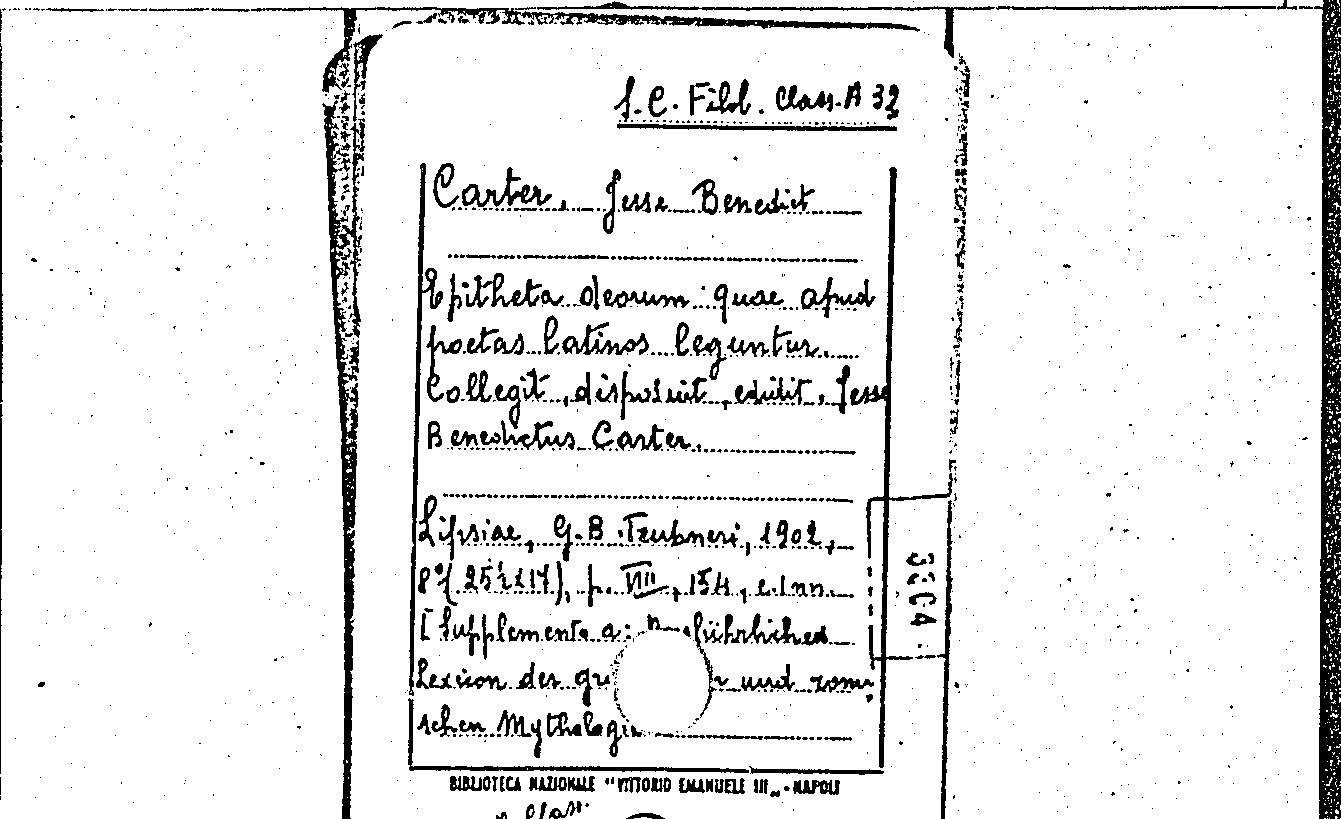 S.C. Filol. Class. A 32
Carter, Jesse Benedict
Epitheta deorum quae apud
poetas latinos leguntur.
Collegit, disposuit, edidit, Jesse
Benedictus Carter.
Lipsiae, G.B. Teubneri, 1902,
8°( 17), p. VIII, 154, c.1 nn.
[Supplemento a: Ausführliches
Lexicon der gri r und römi-
schen Mythologie
3304
BIBLIOTECA NAZIONALE "VITTORIO EMANUELE III„ - NAPOLI